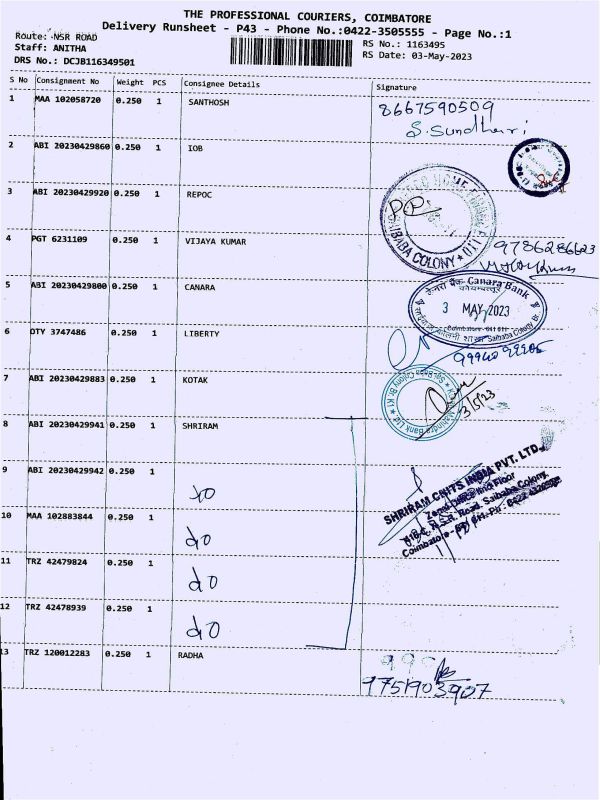 THE PROFESSIONAL COURIERS, COIMBATORE
Delivery Runsheet - P43 - Phone No.:0422-3505555 - Page No.:1
Route: NSR ROAD
Staff: ANITHA
DRS No.: DCJB116349501
RS No.: 1163495
RS Date: 03-May-2023
S No Consignment No Weight PCS Consignee Details Signature
1 MAA 102058720 0.250 1 SANTHOSH 8667590509
S. Sundhari
2 ABI 20230429860 0.250 1 IOB
3 ABI 20230429920 0.250 1 REPOC
COLONY
4 PGT 6231109 0.250 1 VIJAYA KUMAR 9786286623
5 ABI 20230429800 0.250 1 CANARA
Canara Bank
3 MAY 2023
Saibaba Colony Br.
6 OTY 3747486 0.250 1 LIBERTY
7 ABI 20230429883 0.250 1 KOTAK
Mahindra Bank Ltd
3/5/23
8 ABI 20230429941 0.250 1 SHRIRAM
SHRIRAM CHITS INDIA PVT. LTD.,
Floor
N.S.R. Road, Saibaba Colony,
Coimbatore
9 ABI 20230429942 0.250 1 do
10 MAA 102883844 0.250 1 do
11 TRZ 42479824 0.250 1 do
12 TRZ 42478939 0.250 1 do
13 TRZ 120012283 0.250 1 RADHA
9751903907